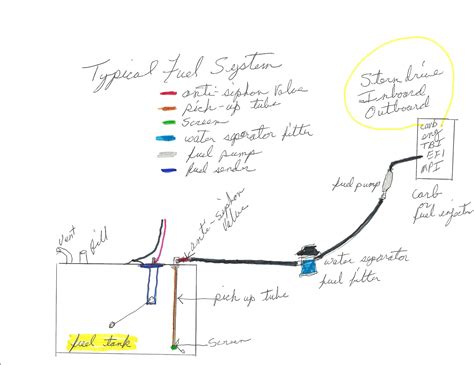 Typical Fuel System
anti-siphon valve
pick-up tube
screen
water seperator filter
fuel pump
fuel sender
Stern drive
Inboard
Outboard
carb
eng
TBI
EFI
MPI
carb
or
fuel injector
fuel pump
vent
fill
anti-siphon
valve
water separator
fuel filter
pick up tube
fuel tank
screen